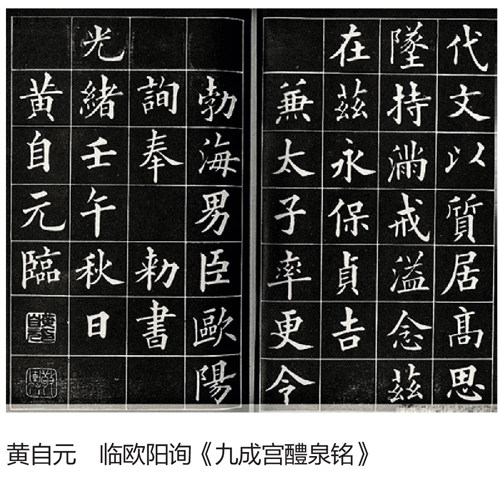 代文以質居高思
墜持滿戒溢念茲
在茲永保貞吉
兼太子率更令
勃海男臣歐陽
詢奉 勅書
光緒壬午秋日
黄自元臨
黄自元 临欧阳询《九成宫醴泉铭》